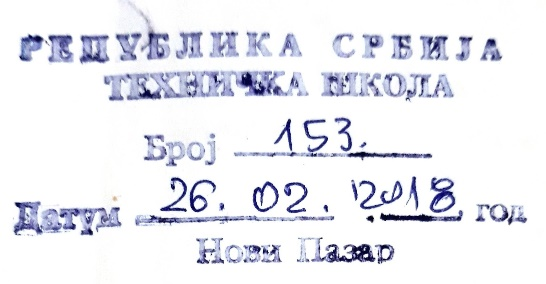 РЕПУБЛИКА СРБИЈА
ТЕХНИЧКА ШКОЛА
Број 153.
Датум 26. 02. 2018 год
Нови Пазар